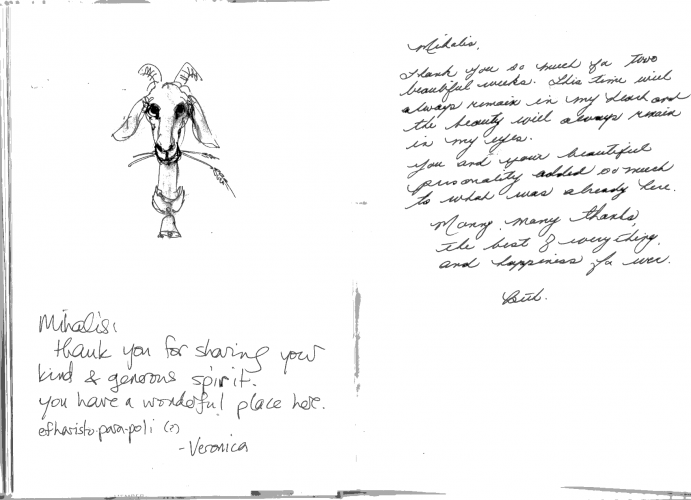 Mihalis:
thank you for sharing your
kind & generous spirit.
you have a wonderful place here.
efharisto.para.poli (?)
-Veronica
Mihalis,
Thank you so much for two
beautiful weeks. This time will
always remain in my heart and
the beauty will always remain
in my eyes.
You and your beautiful
personality added so much
to what was already here.
Many, many thanks,
the best of everything,
and happiness for ever.
Beth.